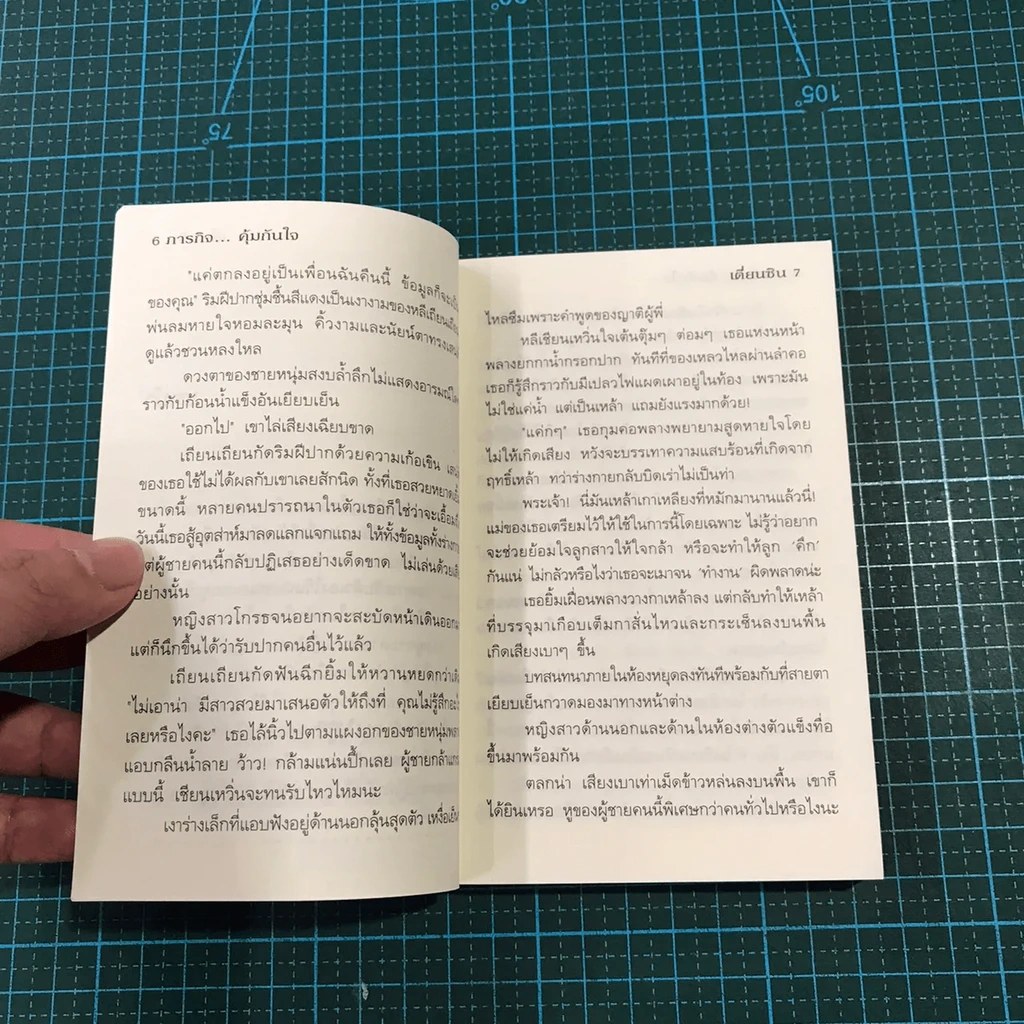 75°
90°
105°
6 ภารกิจ... คุ้มกันใจ
"แค่ตกลงอยู่เป็นเพื่อนฉันคืนนี้ ข้อมูลก็จะ
ของคุณ" ริมฝีปากชุ่มชื้นสีแดงเป็นเงางามของหลีเถียนเถียน
พ่นลมหายใจหอมละมุน คิ้วงามและนัยน์ตาทรงเสน่ห์
ดูแล้วชวนหลงใหล
ดวงตาของชายหนุ่มสงบล้ำลึกไม่แสดงอารมณ์
ราวกับก้อนน้ำแข็งอันเยียบเย็น
"ออกไป" เขาไล่เสียงเฉียบขาด
เถียนเถียนกัดริมฝีปากด้วยความเก้อเขิน
ของเธอใช้ไม่ได้ผลกับเขาเลยสักนิด ทั้งที่เธอสวยหยาดเยิ้ม
ขนาดนี้ หลายคนปรารถนาในตัวเธอก็ใช่ว่าจะเอื้อม
วันนี้เธอสู้อุตส่าห์มาลดแลกแจกแถม ให้ทั้งข้อมูลทั้งร่างกาย
แต่ผู้ชายคนนี้กลับปฏิเสธอย่างเด็ดขาด ไม่เล่นด้วย
อย่างนั้น
หญิงสาวโกรธจนอยากจะสะบัดหน้าเดินออก
แต่ก็นึกขึ้นได้ว่ารับปากคนอื่นไว้แล้ว
เถียนเถียนกัดฟันฉีกยิ้มให้หวานหยดกว่าเดิม
"ไม่เอาน่า มีสาวสวยมาเสนอตัวให้ถึงที่ คุณไม่รู้สึก
เลยหรือไงคะ" เธอไล้นิ้วไปตามแผงอกของชายหนุ่ม
แอบกลืนน้ำลาย ว้าว! กล้ามแน่นปึ้กเลย ผู้ชายกล้าแกร่ง
แบบนี้ เชียนเหวิ่นจะทนรับไหวไหมนะ
เงาร่างเล็กที่แอบฟังอยู่ด้านนอกลุ้นสุดตัว เหงื่อเย็น
เตี่ยนซิน 7
ไหลซึมเพราะคำพูดของญาติผู้พี่
หลีเชียนเหวิ่นใจเต้นตุ๊มๆ ต่อมๆ เธอแหงนหน้า
พลางยกกาน้ำกรอกปาก ทันทีที่ของเหลวไหลผ่านลำคอ
เธอก็รู้สึกราวกับมีเปลวไฟแผดเผาอยู่ในท้อง เพราะมัน
ไม่ใช่แค่น้ำ แต่เป็นเหล้า แถมยังแรงมากด้วย!
"แค่กๆ" เธอกุมคอพลางพยายามสูดหายใจโดย
ไม่ให้เกิดเสียง หวังจะบรรเทาความแสบร้อนที่เกิดจาก
ฤทธิ์เหล้า ทว่าร่างกายกลับบิดเร่าไม่เป็นท่า
พระเจ้า! นี่มันเหล้าเกาเหลียงที่หมักมานานแล้วนี่!
แม่ของเธอเตรียมไว้ให้ใช้ในการนี้โดยเฉพาะ ไม่รู้ว่าอยาก
จะช่วยย้อมใจลูกสาวให้ใจกล้า หรือจะทำให้ลูก 'คึก'
กันแน่ ไม่กลัวหรือไงว่าเธอจะเมาจน 'ทำงาน' ผิดพลาดน่ะ
เธอยิ้มเฝื่อนพลางวางกาเหล้าลง แต่กลับทำให้เหล้า
ที่บรรจุมาเกือบเต็มกาสั่นไหวและกระเซ็นลงบนพื้น
เกิดเสียงเบาๆ ขึ้น
บทสนทนาภายในห้องหยุดลงทันทีพร้อมกับที่สายตา
เยียบเย็นกวาดมองมาทางหน้าต่าง
หญิงสาวด้านนอกและด้านในห้องต่างตัวแข็งทื่อ
ขึ้นมาพร้อมกัน
ตลกน่า เสียงเบาเท่าเม็ดข้าวหล่นลงบนพื้น เขาก็
ได้ยินเหรอ หูของผู้ชายคนนี้พิเศษกว่าคนทั่วไปหรือไงนะ